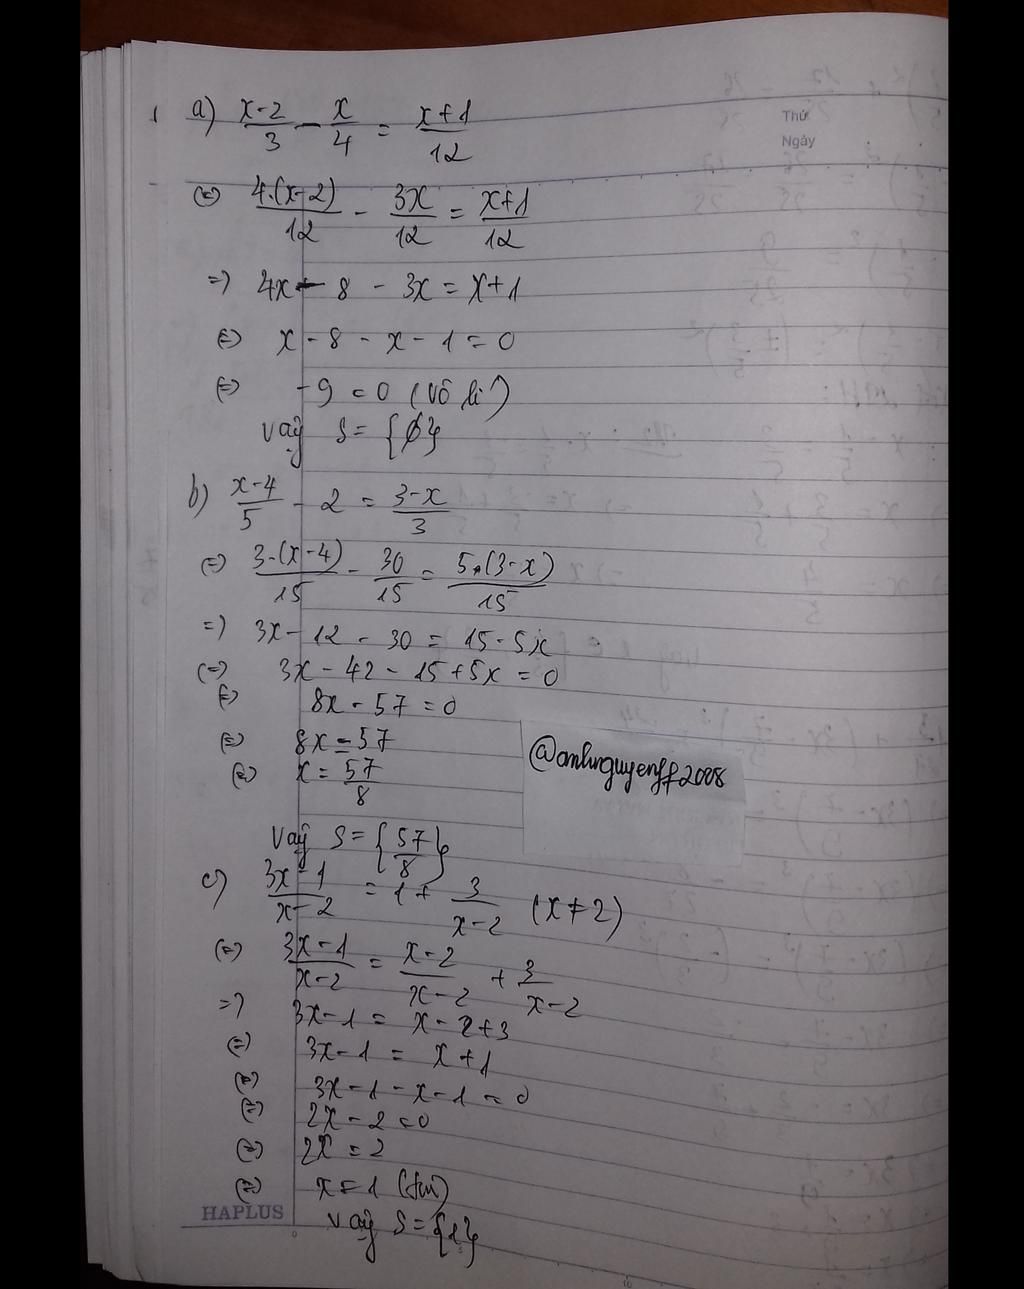 Thứ
Ngày
a) \frac{x-2}{3} - \frac{x}{4} = \frac{x+1}{12}
(=) \frac{4.(x-2)}{12} - \frac{3x}{12} = \frac{x+1}{12}
=) 4x - 8 - 3x = x+1
(=) x - 8 - x - 1 = 0
(=) -9 = 0 (vô lí)
vậy S = {∅}
b) \frac{x-4}{5} - 2 = \frac{3-x}{3}
(=) \frac{3.(x-4)}{15} - \frac{30}{15} = \frac{5.(3-x)}{15}
=) 3x - 12 - 30 = 15 - 5x
(=) 3x - 42 - 15 + 5x = 0
(=) 8x - 57 = 0
(=) 8x = 57
(=) x = \frac{57}{8}
Vậy S = {\frac{57}{8}}
@anhnguyenff2008
c) \frac{3x-1}{x-2} = 1 + \frac{3}{x-2} (x ≠ 2)
(=) \frac{3x-1}{x-2} = \frac{x-2}{x-2} + \frac{3}{x-2}
=) 3x-1 = x-2+3
(=) 3x-1 = x+1
(=) 3x-1-x-1=0
(=) 2x-2=0
(=) 2x = 2
(=) x = 1 (tm)
vậy S = {1}
HAPLUS